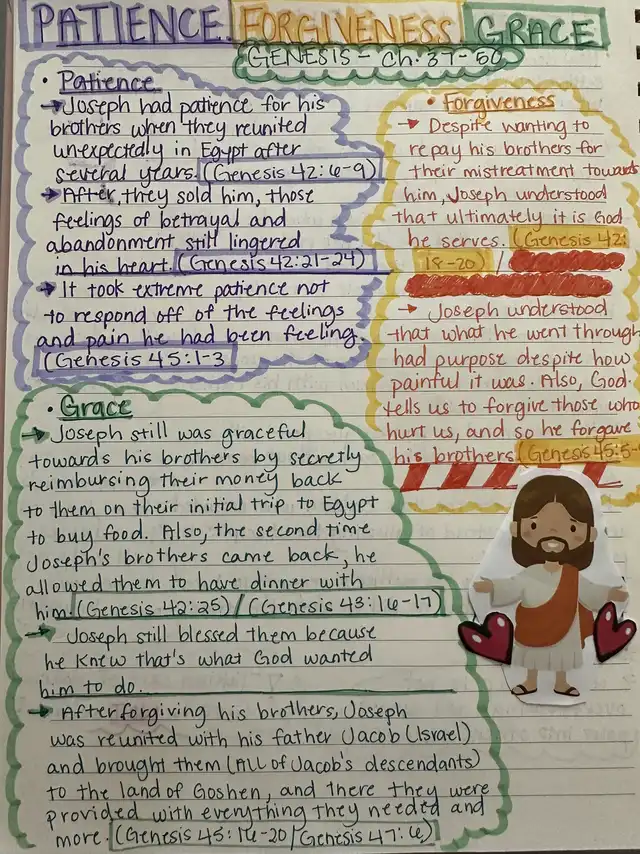 PATIENCE FORGIVENESS GRACE
GENESIS - Ch. 37-50
• Patience
→ Joseph had patience for his
brothers when they reunited
unexpectedly in Egypt after
several years. (Genesis 42:6-9)
→ After, they sold him, those
feelings of betrayal and
abandonment still lingered
in his heart. (Genesis 42:21-24)
→ It took extreme patience not
to respond off of the feelings
and pain he had been feeling.
(Genesis 45:1-3
• Forgiveness
→ Despite wanting to
repay his brothers for
their mistreatment towards
him, Joseph understood
that ultimately it is God
he serves. (Genesis 42:
18-20) /
→ Joseph understood
that what he went through
had purpose despite how
painful it was. Also, God
tells us to forgive those who
hurt us, and so he forgave
his brothers. (Genesis 45:5-
• Grace
→ Joseph still was graceful
towards his brothers by secretly
reimbursing their money back
to them on their initial trip to Egypt
to buy food. Also, the second time
Joseph's brothers came back, he
allowed them to have dinner with
him. (Genesis 42:25) / (Genesis 43:16-17)
→ Joseph still blessed them because
he knew that's what God wanted
him to do.
→ After forgiving his brothers, Joseph
was reunited with his father Jacob (Israel)
and brought them (ALL of Jacob's descendants)
to the land of Goshen, and there they were
provided with everything they needed and
more. (Genesis 45:16-20 / Genesis 47:6)